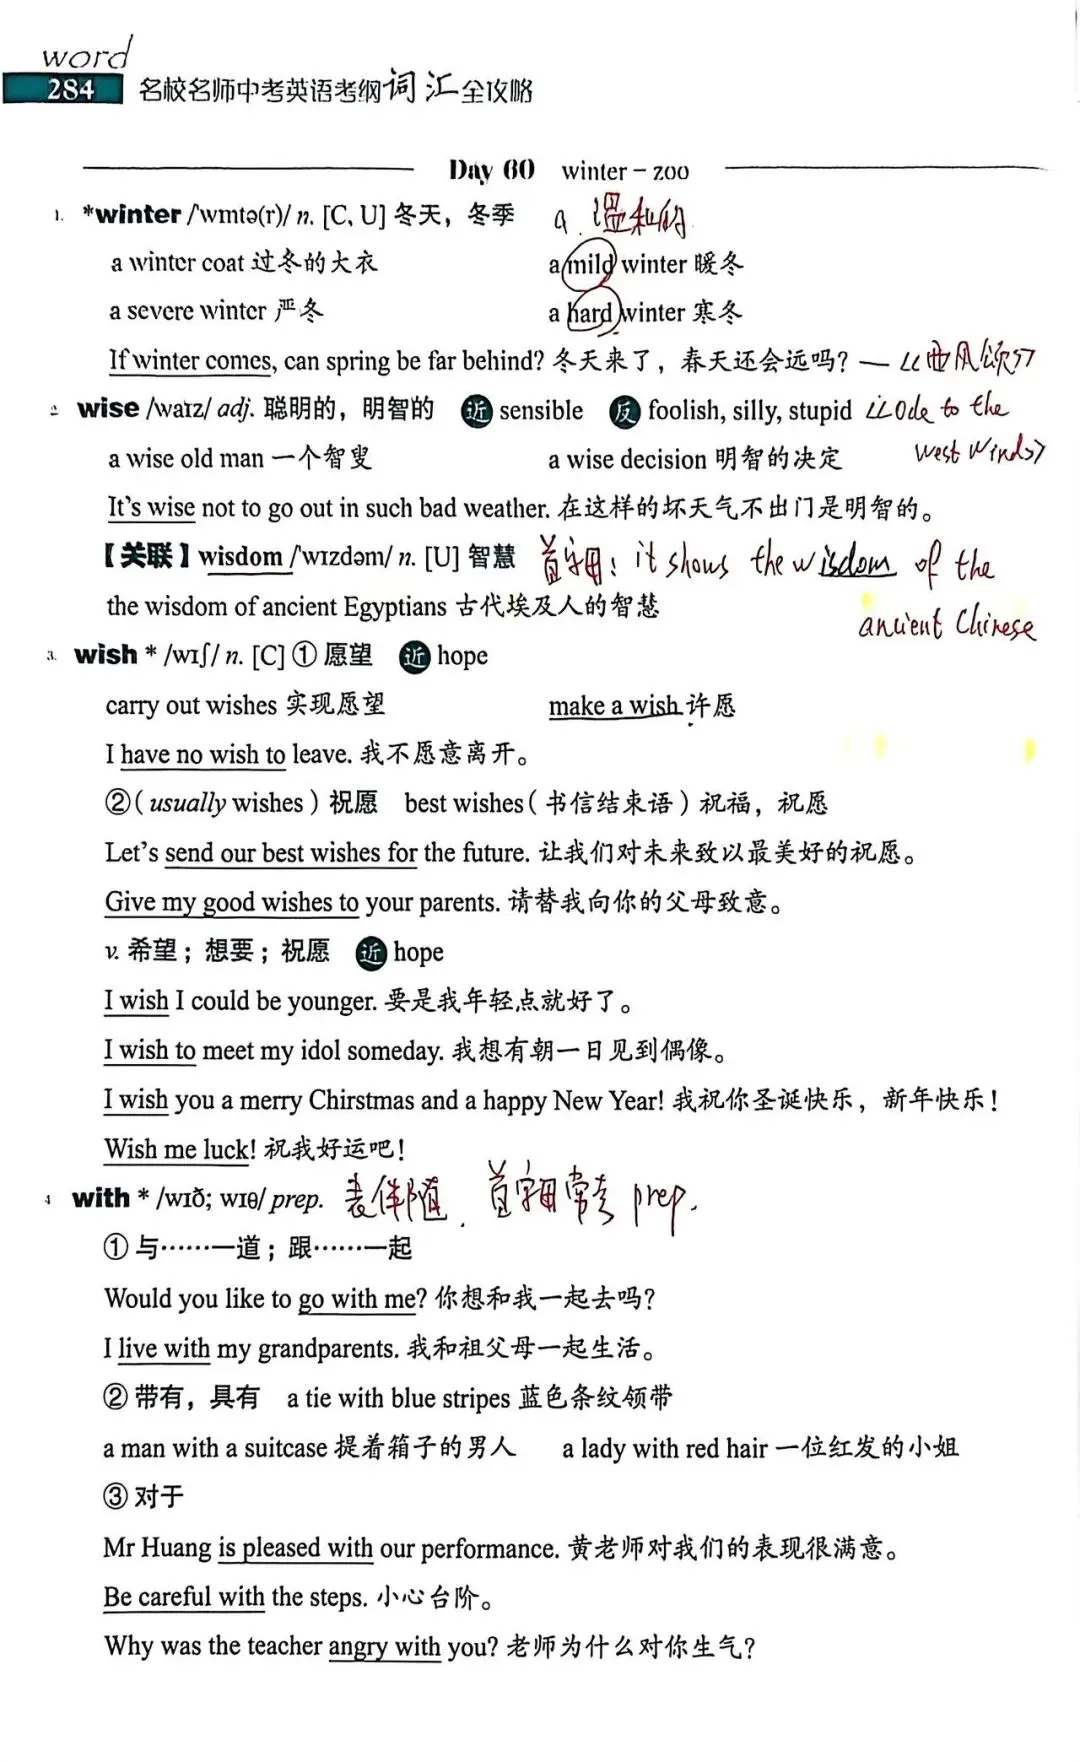 word
284 名校名师中考英语考纲词汇全攻略
Day 60 winter – zoo
1. *winter /'wɪntə(r)/ n. [C, U] 冬天，冬季 a. 温和的
a winter coat 过冬的大衣 a mild winter 暖冬
a severe winter 严冬 a hard winter 寒冬
If winter comes, can spring be far behind? 冬天来了，春天还会远吗? — 《西风颂》
2. wise /waɪz/ adj. 聪明的，明智的 近 sensible 反 foolish, silly, stupid 《Ode to the
a wise old man 一个智叟 a wise decision 明智的决定 west Wind》
It's wise not to go out in such bad weather. 在这样的坏天气不出门是明智的。
【关联】wisdom /'wɪzdəm/ n. [U] 智慧 首字母: it shows the wisdom of the
the wisdom of ancient Egyptians 古代埃及人的智慧 ancient Chinese
3. wish * /wɪʃ/ n. [C] ① 愿望 近 hope
carry out wishes 实现愿望 make a wish 许愿
I have no wish to leave. 我不愿意离开。
②( usually wishes ) 祝愿 best wishes ( 书信结束语 ) 祝福，祝愿
Let's send our best wishes for the future. 让我们对未来致以最美好的祝愿。
Give my good wishes to your parents. 请替我向你的父母致意。
v. 希望；想要；祝愿 近 hope
I wish I could be younger. 要是我年轻点就好了。
I wish to meet my idol someday. 我想有朝一日见到偶像。
I wish you a merry Chirstmas and a happy New Year! 我祝你圣诞快乐，新年快乐!
Wish me luck! 祝我好运吧!
4 with * /wɪð; wɪθ/ prep. 表伴随. 首字母常考 prep.
① 与……一道；跟……一起
Would you like to go with me? 你想和我一起去吗?
I live with my grandparents. 我和祖父母一起生活。
② 带有，具有 a tie with blue stripes 蓝色条纹领带
a man with a suitcase 提着箱子的男人 a lady with red hair 一位红发的小姐
③ 对于
Mr Huang is pleased with our performance. 黄老师对我们的表现很满意。
Be careful with the steps. 小心台阶。
Why was the teacher angry with you? 老师为什么对你生气?